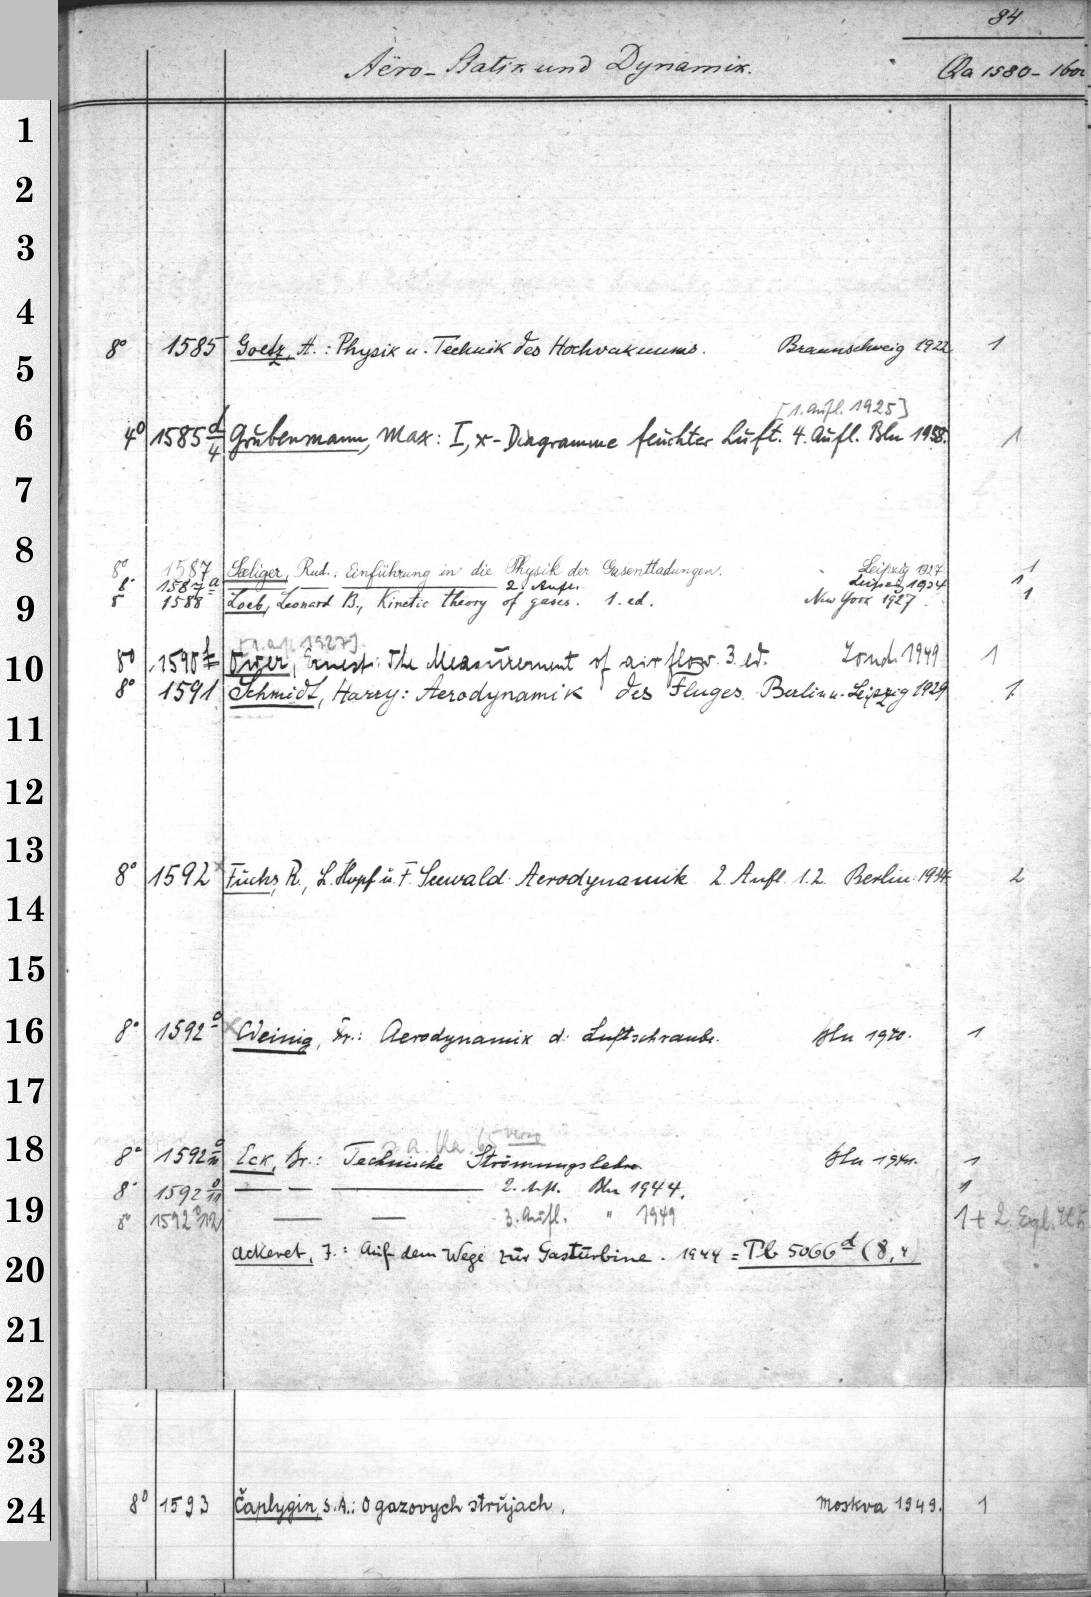 84
Aëro-Statik und Dynamik. Qa 1580-160
1
2
3
4
8° 1585 Goetz, A.: Physik u. Technik des Hochvakuums. Braunschweig 1922 1
5
[1. Aufl. 1925]
6 4° 1585 d/4 Grubenmann, Max: I, x-Diagramme feuchter Luft. 4. Aufl. Bln 1958. 1
7
8
8° 1587 Seeliger, Rud.: Einführung in die Physik der Gasentladungen. Leipzig 1927 1
8° 1587 a — — — 2. Aufl. Leipzig 1934 1
9 8° 1588 Loeb, Leonard B., Kinetic theory of gases. 1. ed. New York 1927. 1
[1. Aufl. 1927].
10 8° 1590 f Ower, Ernest: The Measurement of air flow. 3. ed. Lond. 1949 1
8° 1591 Schmidt, Harry: Aerodynamik des Fluges Berlin u. Leipzig 1929 1
11
12
13
8° 1592 Fuchs, R., L. Hopf u. F. Seewald: Aerodynamik 2. Aufl. 1.2. Berlin 1934 2
14
15
16 8° 1592 Weinig, Fr.: Aerodynamik d. Luftschraube. Bln 1940. 1
17
18 8° 1592 Eck, Br.: Technische Strömungslehre. Bln 1941. 1
8° 1592 — — — 2. Aufl. Bln 1944. 1
19 8° 1592 — — 3. Aufl. " 1949 1 + 2.
20 Ackeret, J.: Auf dem Wege zur Gasturbine. 1944 = Tb 5066 d (8,4)
21
22
23
24 8° 1593 Čaplygin, S. A.: O gazovych strujach. Moskva 1949. 1